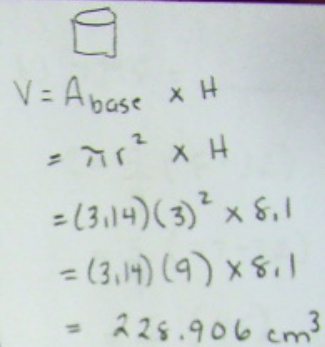 V = A base x H
= πr² x H
= (3,14)(3)² x 8,1
= (3,14)(9) x 8,1
= 228.906 cm³